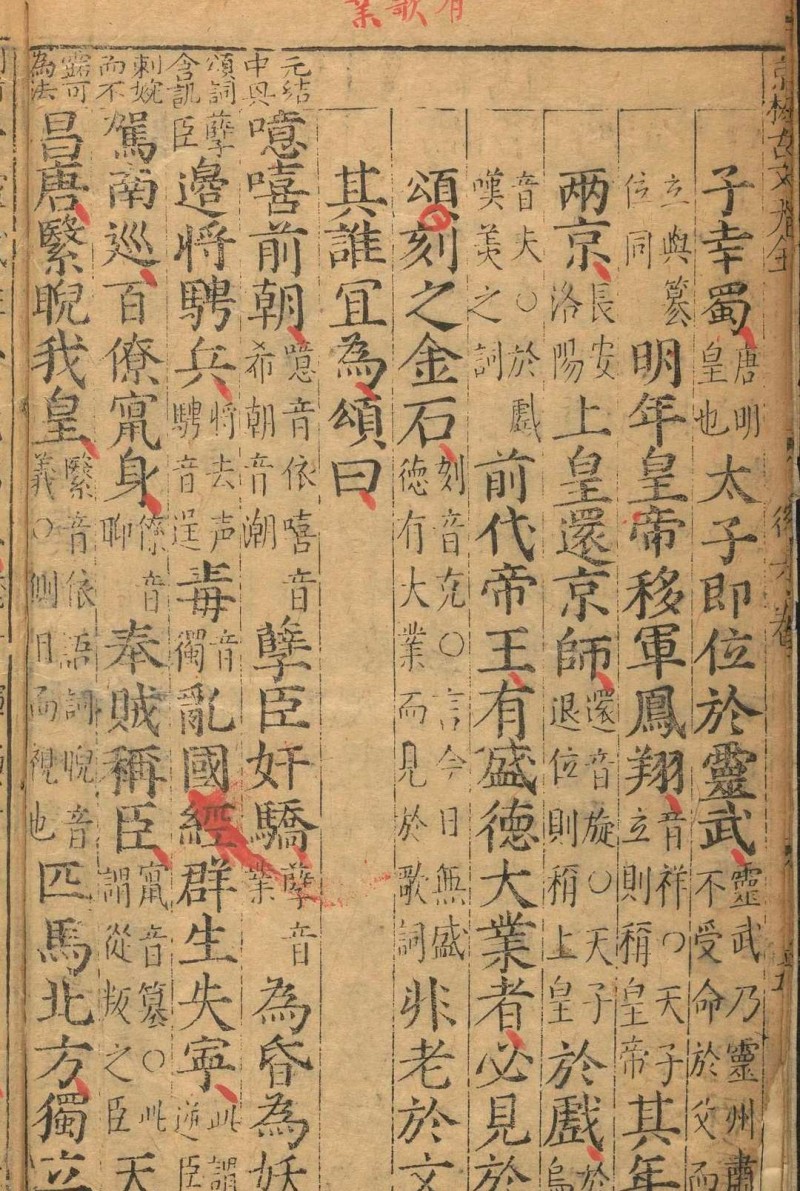 有歌業
子幸蜀唐明皇也太子即位於靈武靈武乃靈州肅不受命於父而
立與篡位同明年皇帝移軍鳳翔音祥○天子立則稱皇帝其年
两京長安洛陽上皇還京師還音旋○天子退位則稱上皇於戲於烏
音夫○於戲嘆美之詞前代帝王有盛德大業者必見於
頌刻之金石刻音克○言今日無盛德有大業而見於歌詞非老於文
其誰宜為頌曰
噫嘻前朝噫音依嘻音希朝音潮孽臣奸驕孽音業為昏為妖
孽臣邉將騁兵將去声騁音逞毒音獨亂國經群生失寧此謂逆臣
駕南巡百僚竄身僚音聊奉賊稱臣竄音篡○此謂從叛之臣天
昌唐繄睨我皇繄音依語詞睨音義○側目而視也匹馬北方獨立
元結
中興
頌詞
含訊
刺婉
而不
露可
為法